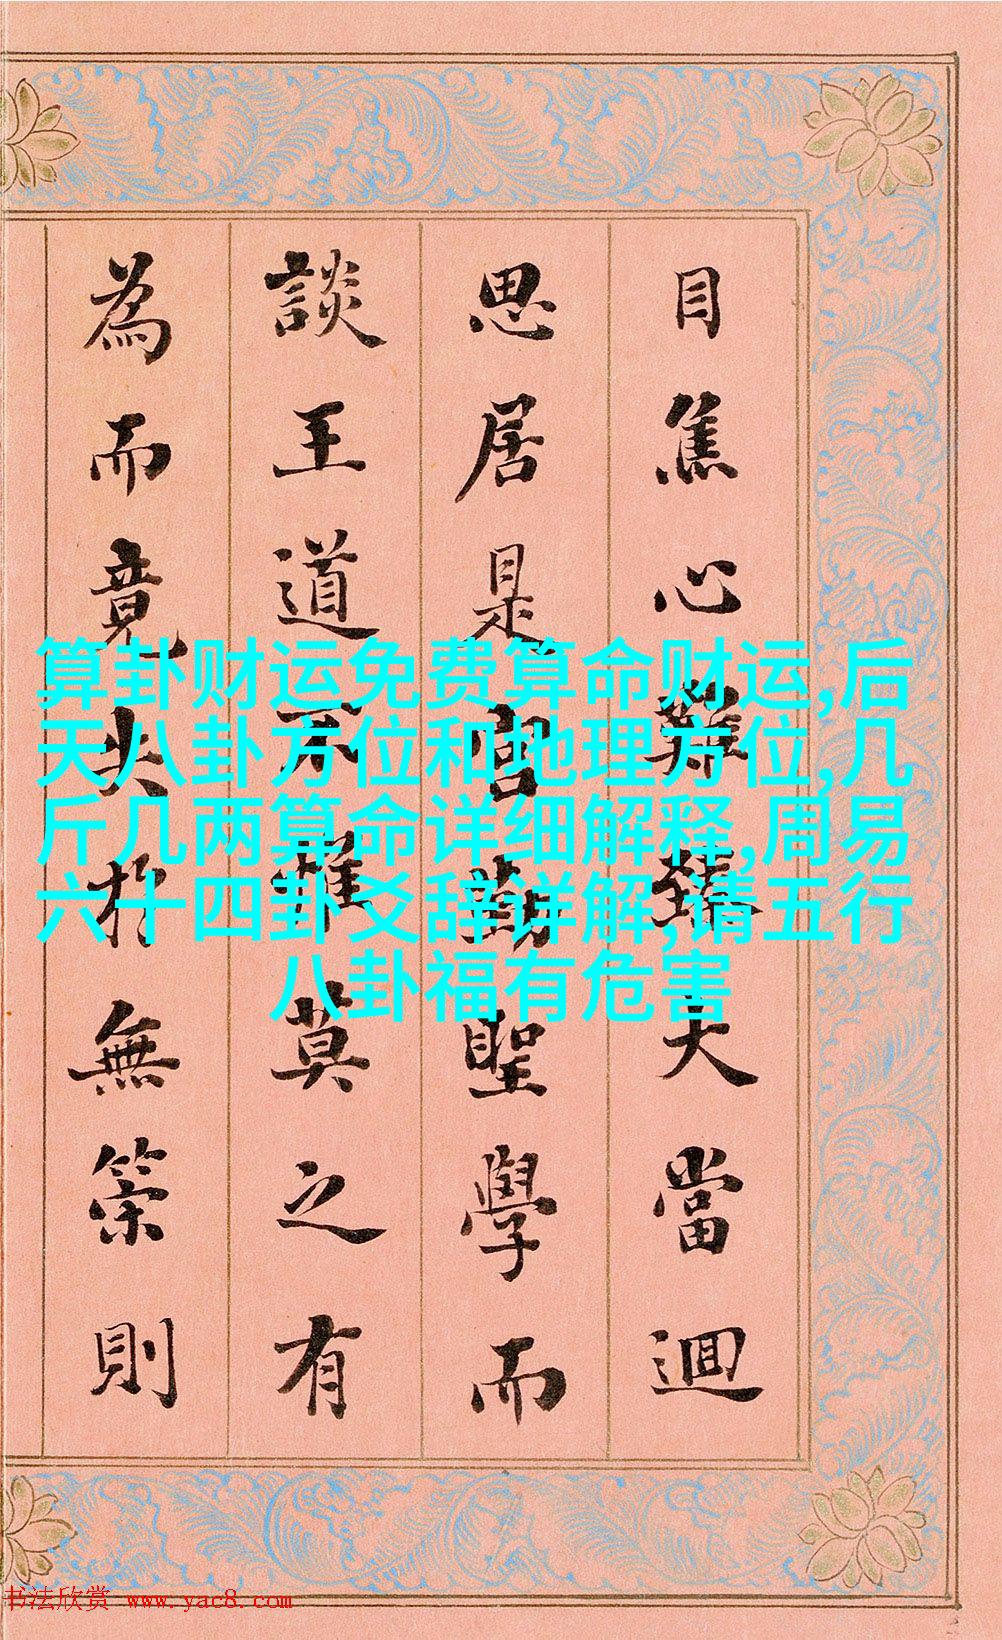 目焦心難臻大當迴
思居是宫勤聖學而
談王道不惟莫之有
為而竟失扵無策則
算卦财运免费算命财运,后
天八卦方位和地理方位,几
斤几两算命详细解释,周易
六十四卦爻辞详解,请五行
八卦福有危害
书法欣赏 www.yac8.com